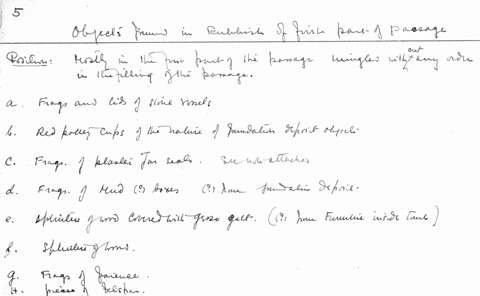 5
Objects found in Rubbish of first part of Passage
Position: Mostly in the first part of the passage mingled without any order
in the filling of the passage.
a. Frags and lids of stone vessels
b. Red pottery cups of the nature of foundation deposit objects
c. Frags. of plaster Jar seals. See note attached
d. Frags. of Mud (?) boxes (?) from foundation deposit.
e. Splinters of wood covered with gesso gilt. (?) from Furniture inside tomb)
f. Splinters of wood.
g. Frags of faience.
H. pieces of felspar.